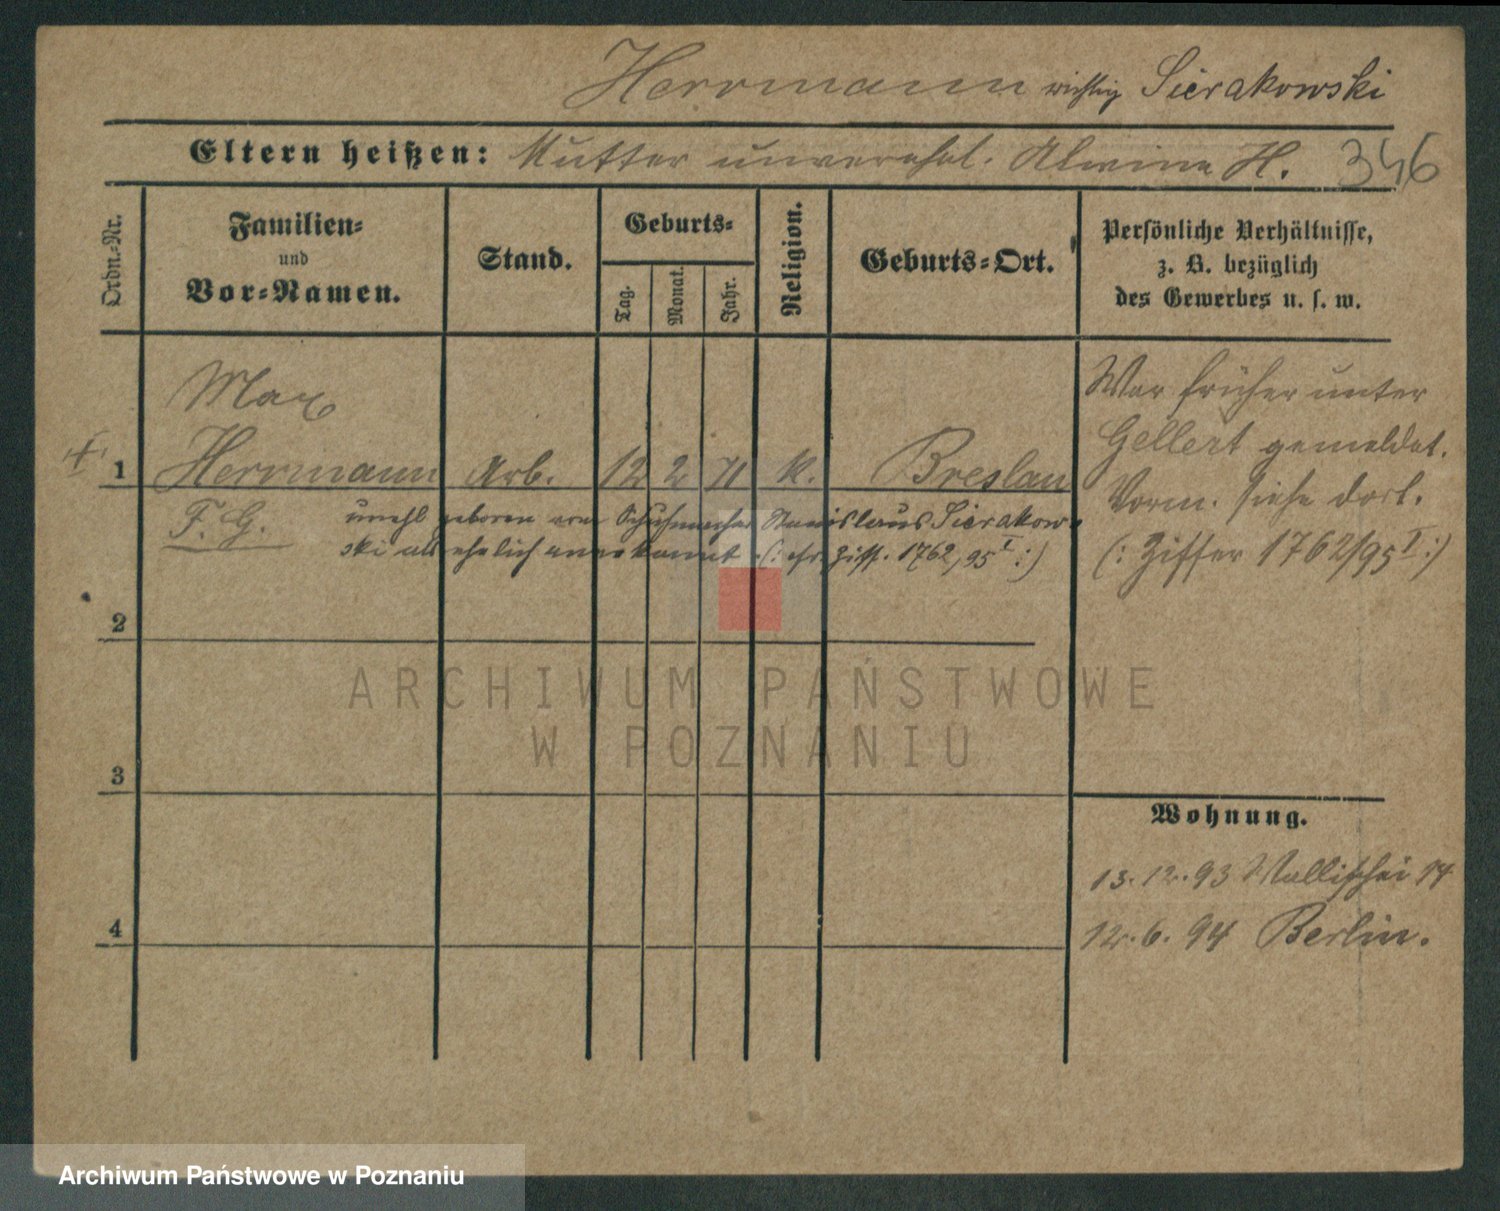 Herrmann richtig Sierakowski
Eltern heißen: Mutter unverehel. Alwine H. 346
Ordn.-Nr.
Familien-
und
Vor-Namen.
Stand.
Geburts-
Tag.
Monat.
Jahr.
Religion.
Geburts-Ort.
Persönliche Verhältnisse,
z. B. bezüglich
des Gewerbes u. s. w.
Max
1 Herrmann Arb. 12 2 71 k. Breslau
F. G.
unehl geboren vom Schuhmacher Stanislaus Sierakow-
ski als ehelich anerkannt (: cfr. Ziff. 1762/95 I :)
War früher unter
Gellert gemeldet.
Vorm. siehe dort.
(: Ziffer 1762/95 I :)
2
3
4
Wohnung.
13.12.93 Wallischei 74
12.6.94 Berlin.
ARCHIWUM PAŃSTWOWE
W POZNANIU
Archiwum Państwowe w Poznaniu